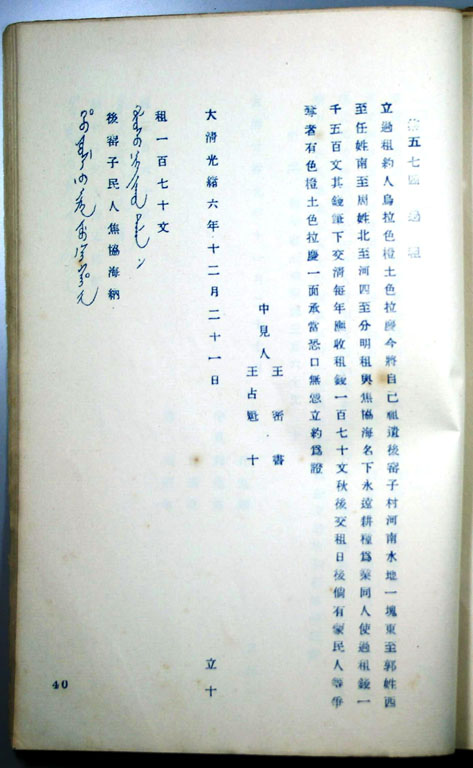 第五七區 過租
立過租約人烏拉色橙土色拉慶今將自己祖遺後窰子村河南水地一塊東至郭姓西
至任姓南至周姓北至河四至分明租與焦協海名下永遠耕種爲業同人使過租錢一
千五百文其錢筆下交清每年應收租錢一百七十文秋後交租日後倘有蒙民人等爭
奪者有色橙土色拉慶一面承當恐口無憑立約爲證
中見人 王密書
王占魁 十
大淸光緖六年十二月二十一日 立十
租一百七十文
後窰子民人焦協海納
40